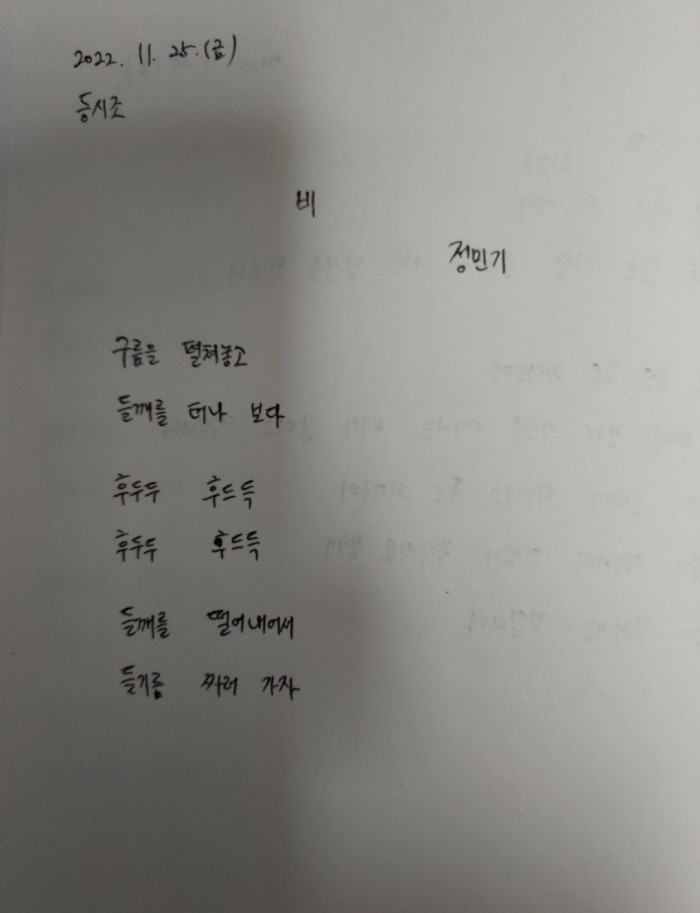 2022. 11. 25. (금)
동시조
비
정민기
구름을 펼쳐놓고
들깨를 터나 보다
후두두 후드득
후두두 후드득
들깨를 떨어내어서
들기름 짜러 가자